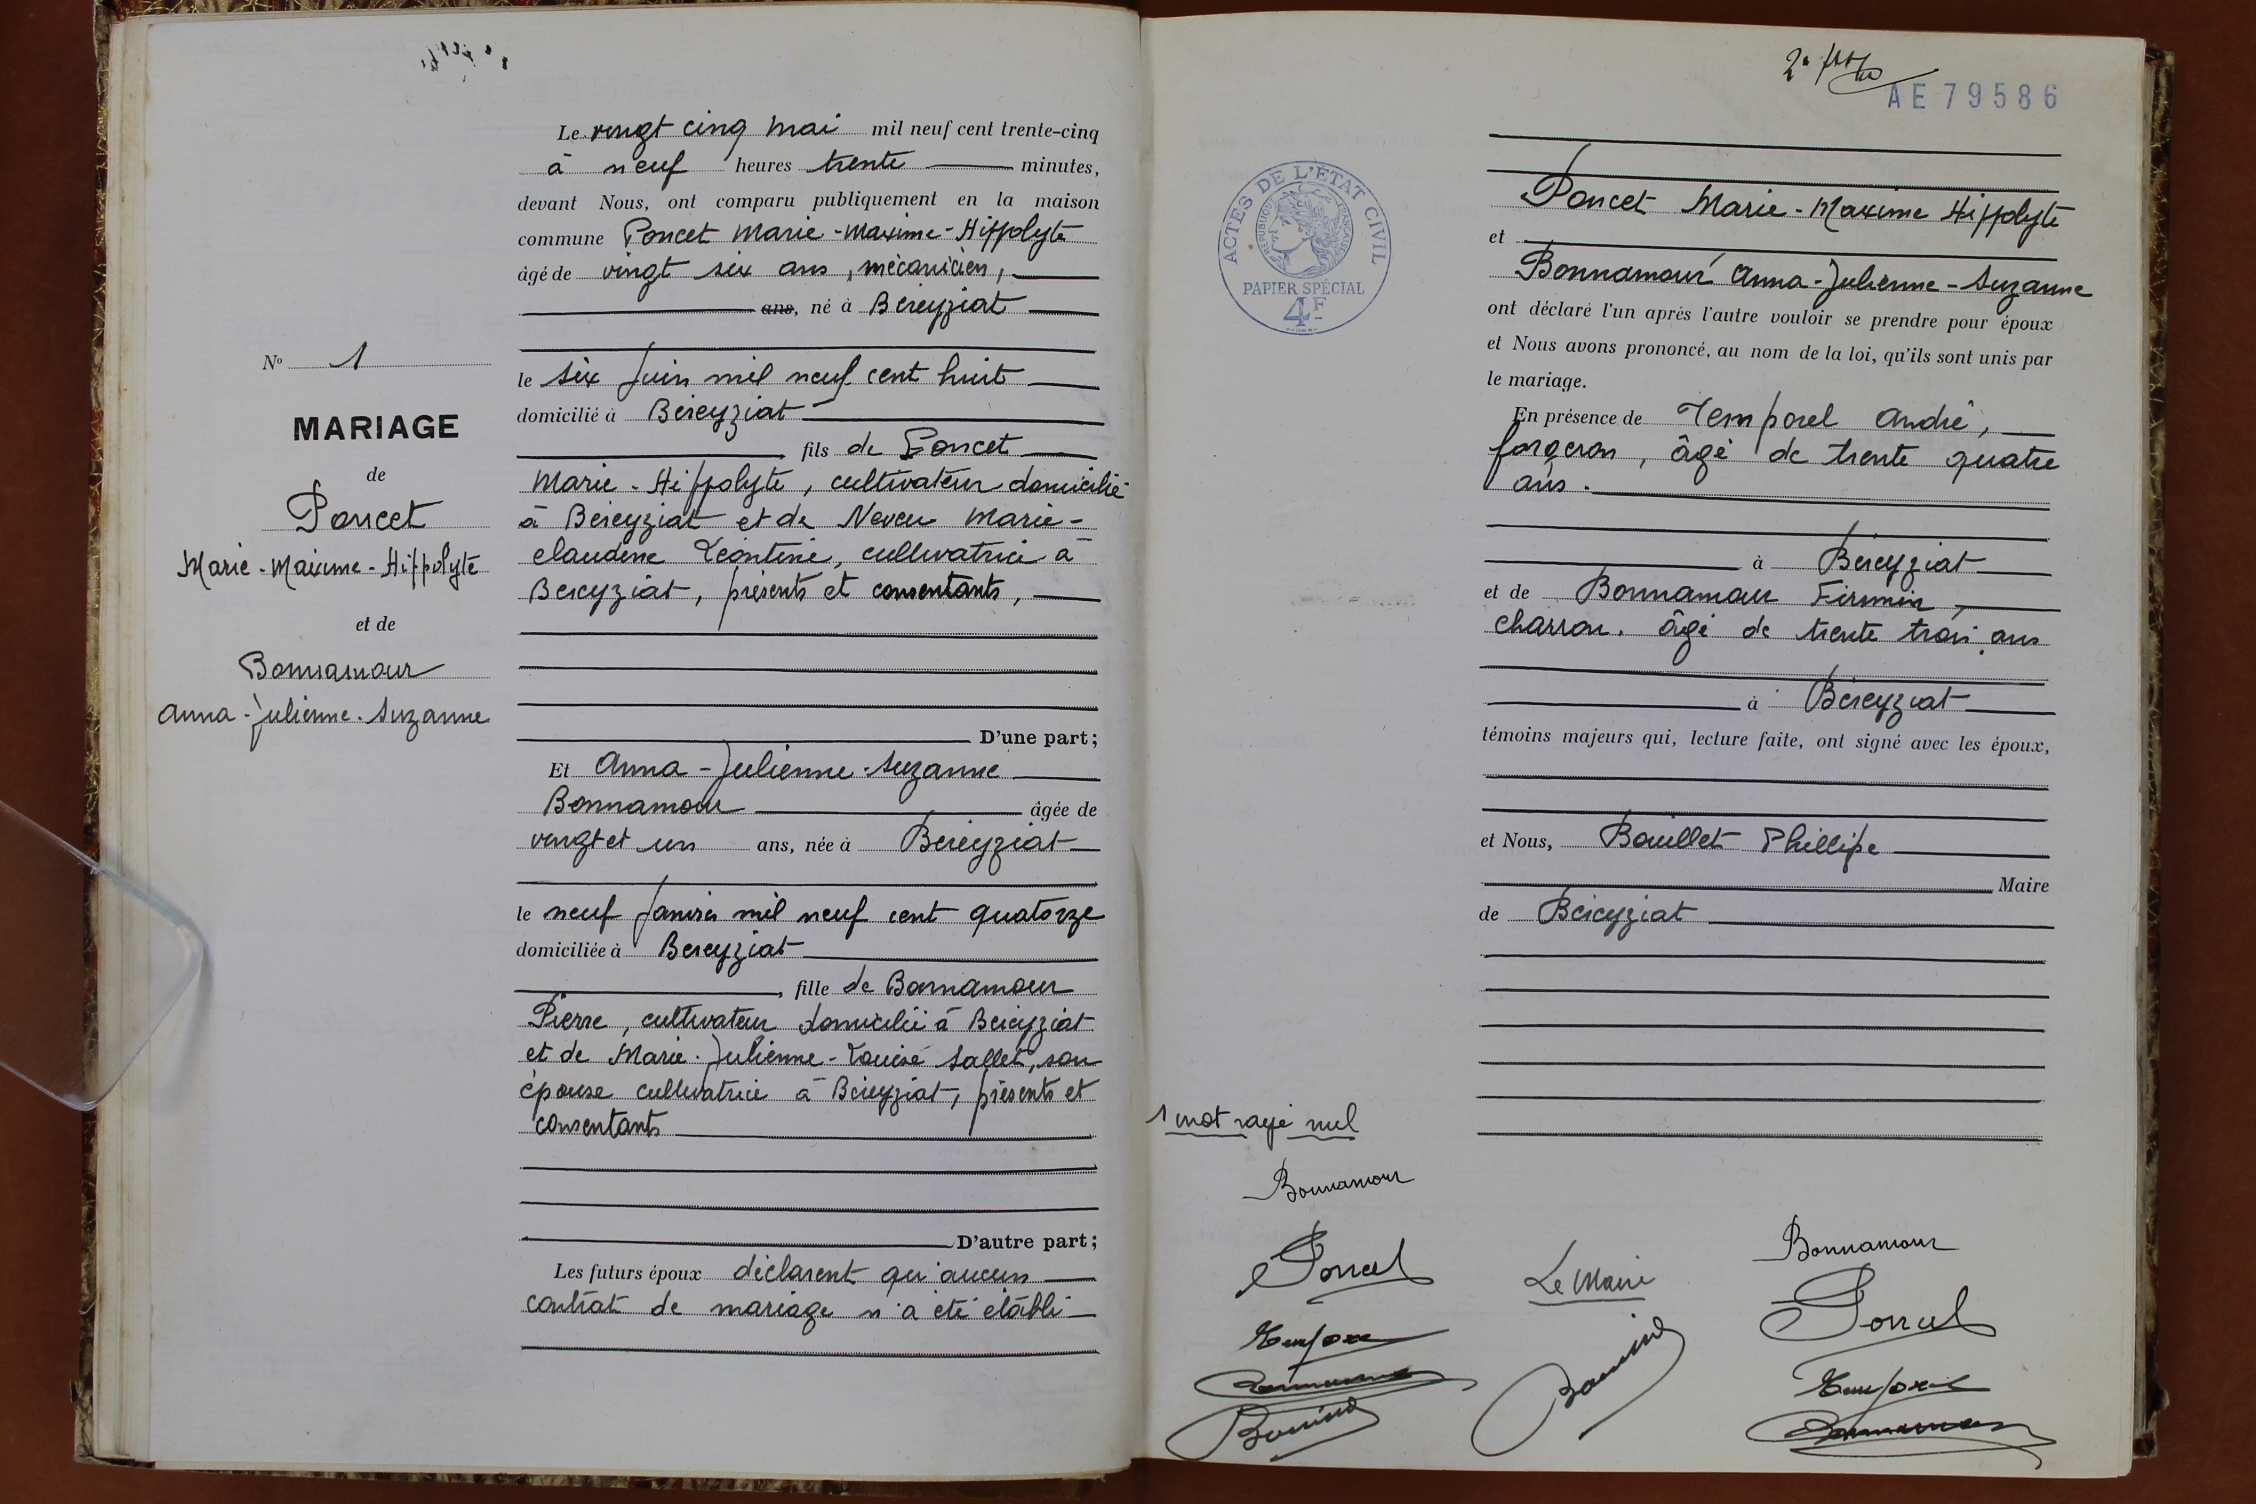 Le vingt cinq mai mil neuf cent trente-cinq
à neuf heures trente minutes,
devant Nous, ont comparu publiquement en la maison
commune Poncet Marie-Maxime-Hippolyte
âgé de vingt six ans, mécanicien,
ans, né à Béréyziat
le six Juin mil neuf cent huit
domicilié à Béréyziat
fils de Poncet
Marie-Hippolyte, cultivateur domicilié
à Béréyziat et de Neveu Marie-
claudine Léontine, cultivatrice à
Béréyziat, présents et consentants,
D'une part;
Et Anna-Julienne-Suzanne
Bonnamour âgée de
vingt et un ans, née à Béréyziat
le neuf Janvier mil neuf cent quatorze
domiciliée à Béréyziat
, fille de Bonnamour
Pierre, cultivateur domicilié à Béréyziat
et de Marie-Julienne-Louise Sallet, son
épouse cultivatrice à Béréyziat, présents et
consentants
D'autre part;
Les futurs époux déclarent qu'aucun
contrat de mariage n'a été établi
N° 1
MARIAGE
de
Poncet
Marie-Maxime-Hippolyte
et de
Bonnamour
Anna-Julienne-Suzanne
AE79586
ACTES DE L'ÉTAT CIVIL
RÉPUBLIQUE FRANÇAISE
PAPIER SPÉCIAL
4F
Poncet Marie-Maxime Hippolyte
et
Bonnamour Anna-Julienne-Suzanne
ont déclaré l'un aprés l'autre vouloir se prendre pour époux
et Nous avons prononcé, au nom de la loi, qu'ils sont unis par
le mariage.
En présence de Temporel André,
forgeron, âgé de trente quatre
ans.
à Béréyziat
et de Bonnamour Firmin,
charron. âgé de trente trois ans
à Béréyziat
témoins majeurs qui, lecture faite, ont signé avec les époux,
et Nous, Bouillet Phillipe
Maire
de Béréyziat
1 mot rayé nul
Bonnamour
Poncet
Temporel
Bonnamour
Le Maire
Bonnamour
Poncet
Temporel
Bonnamour